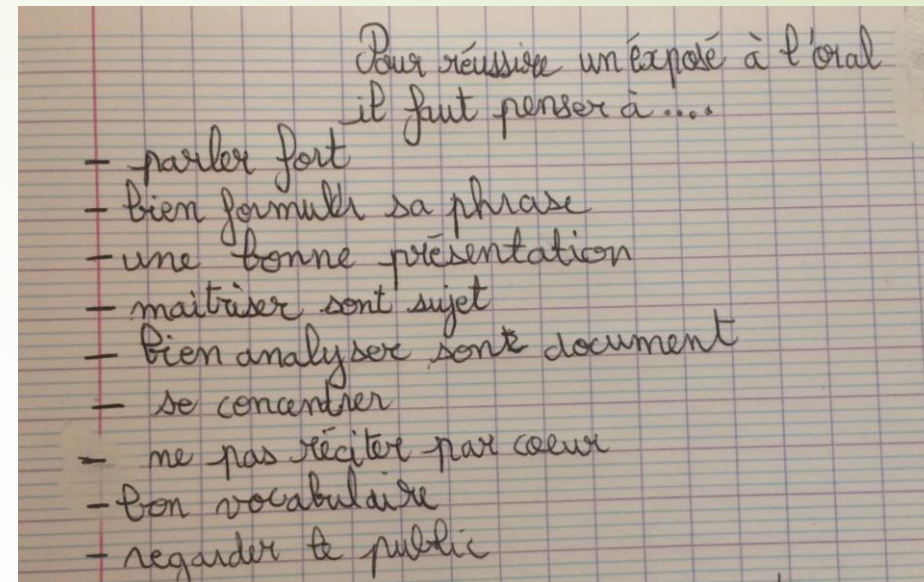 Pour réussire un éxposé à l'oral
il faut penser à....
- parler fort
- bien formuler sa phrase
- une bonne présentation
- maitriser sont sujet
- bien analyser sont document
- se concentrer
- ne pas réciter par coeur
- bon vocabulaire
- regarder le public